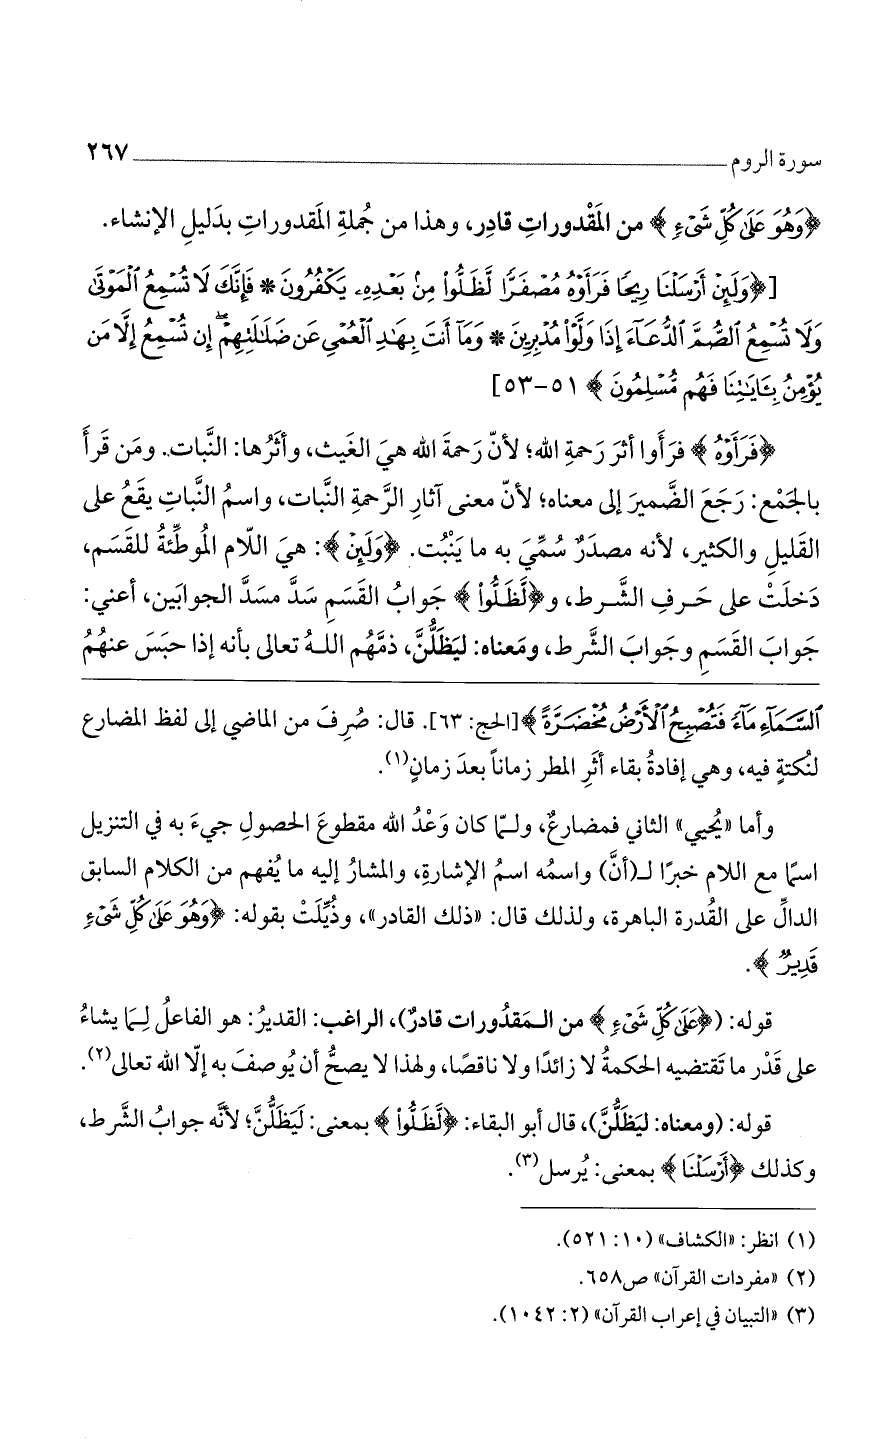 سورة الروم ٢٦٧
﴿وَهُوَ عَلَىٰ كُلِّ شَىْءٍ﴾ من المَقْدوراتِ قادِر، وهذا من جُملةِ المَقدوراتِ بدَليلِ الإنشاء.
[﴿وَلَئِنْ أَرْسَلْنَا رِيحًا فَرَأَوْهُ مُصْفَرًّا لَّظَلُّوا۟ مِنۢ بَعْدِهِۦ يَكْفُرُونَ * فَإِنَّكَ لَا تُسْمِعُ ٱلْمَوْتَىٰ
وَلَا تُسْمِعُ ٱلصُّمَّ ٱلدُّعَآءَ إِذَا وَلَّوْا۟ مُدْبِرِينَ * وَمَآ أَنتَ بِهَٰدِ ٱلْعُمْىِ عَن ضَلَٰلَتِهِمْ ۖ إِن تُسْمِعُ إِلَّا مَن
يُؤْمِنُ بِـَٔايَٰتِنَا فَهُم مُّسْلِمُونَ﴾ ٥١-٥٣]
﴿فَرَأَوْهُ﴾ فرَأَوا أثرَ رَحمةِ الله؛ لأنّ رَحمةَ الله هيَ الغَيث، وأثَرُها: النَّبات. ومَن قرأَ
بالجَمْع: رَجَعَ الضَّميرَ إلى معناه؛ لأنّ معنى آثارِ الرَّحمةِ النَّبات، واسمُ النَّباتِ يقَعُ على
القَليلِ والكثير، لأنه مصدَرٌ سُمِّيَ به ما يَنْبُت. ﴿وَلَئِنْ﴾: هيَ اللّام المُوطِّئةُ للقَسَم،
دَخلَتْ على حَرفِ الشَّرط، و﴿لَّظَلُّوا۟﴾ جوابُ القَسَمِ سَدَّ مسَدَّ الجوابَين، أعني:
جوابَ القَسَمِ وجَوابَ الشَّرط، ومَعناه: ليَظَلُّنَّ، ذمَّهُم اللهُ تعالى بأنه إذا حبَسَ عنهُمُ
ٱلسَّمَآءِ مَآءً فَتُصْبِحُ ٱلْأَرْضُ مُخْضَرَّةً﴾ [الحج: ٦٣]. قال: صُرِفَ من الماضي إلى لفظ المضارع
لنُكتةٍ فيه، وهي إفادةُ بقاء أثَرِ المطر زماناً بعدَ زمانٍ(١).
وأما «يُحيي» الثاني فمضارعٌ، ولـمّا كان وَعْدُ الله مقطوعَ الحصولِ جيءَ به في التنزيل
اسمًا مع اللام خبرًا لـ(أنَّ) واسمُه اسمُ الإشارةِ، والمشارُ إليه ما يُفهم من الكلام السابق
الدالِّ على القُدرة الباهرة، ولذلك قال: «ذلك القادر»، وذُيِّلَتْ بقوله: ﴿وَهُوَ عَلَىٰ كُلِّ شَىْءٍ
قَدِيرٌ﴾.
قوله: (﴿عَلَىٰ كُلِّ شَىْءٍ﴾ من الـمَقدُورات قادرٌ)، الراغب: القديرُ: هو الفاعلُ لِـمَا يشاءُ
على قَدْر ما تَقتضيه الحكمةُ لا زائدًا ولا ناقصًا، ولهذا لا يصحُّ أن يُوصفَ به إلّا الله تعالى(٢).
قوله: (ومعناه: ليَظَلُّنَّ)، قال أبو البقاء: ﴿لَّظَلُّوا۟﴾ بمعنى: لَيَظَلُّنَّ؛ لأنَّه جوابُ الشَّرط،
وكذلك ﴿أَرْسَلْنَا﴾ بمعنى: يُرسل(٣).
(١) انظر: «الكشاف» (١٠: ٥٢١).
(٢) «مفردات القرآن» ص٦٥٨.
(٣) «التبيان في إعراب القرآن» (٢: ١٠٤٢).